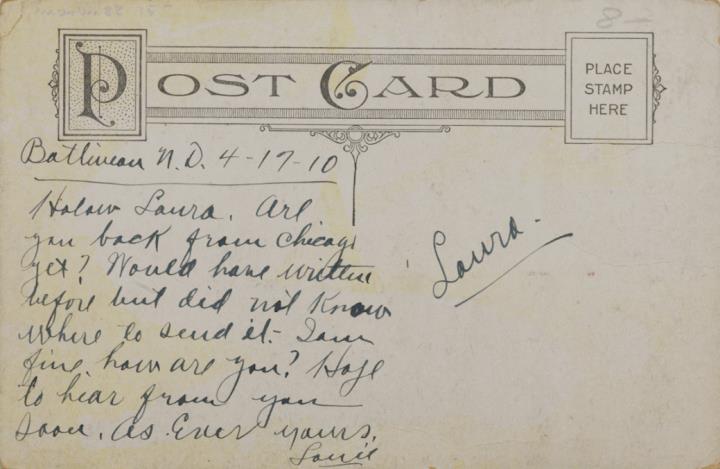 POST CARD
PLACE
STAMP
HERE
Batlineau N.D. 4-17-10
Holow Laura. Are
you back from Chicago
yet? Would have written
before but did not know
where to send it. I am
fine, how are you? Hope
to hear from you
soon. As Ever yours,
Laura.